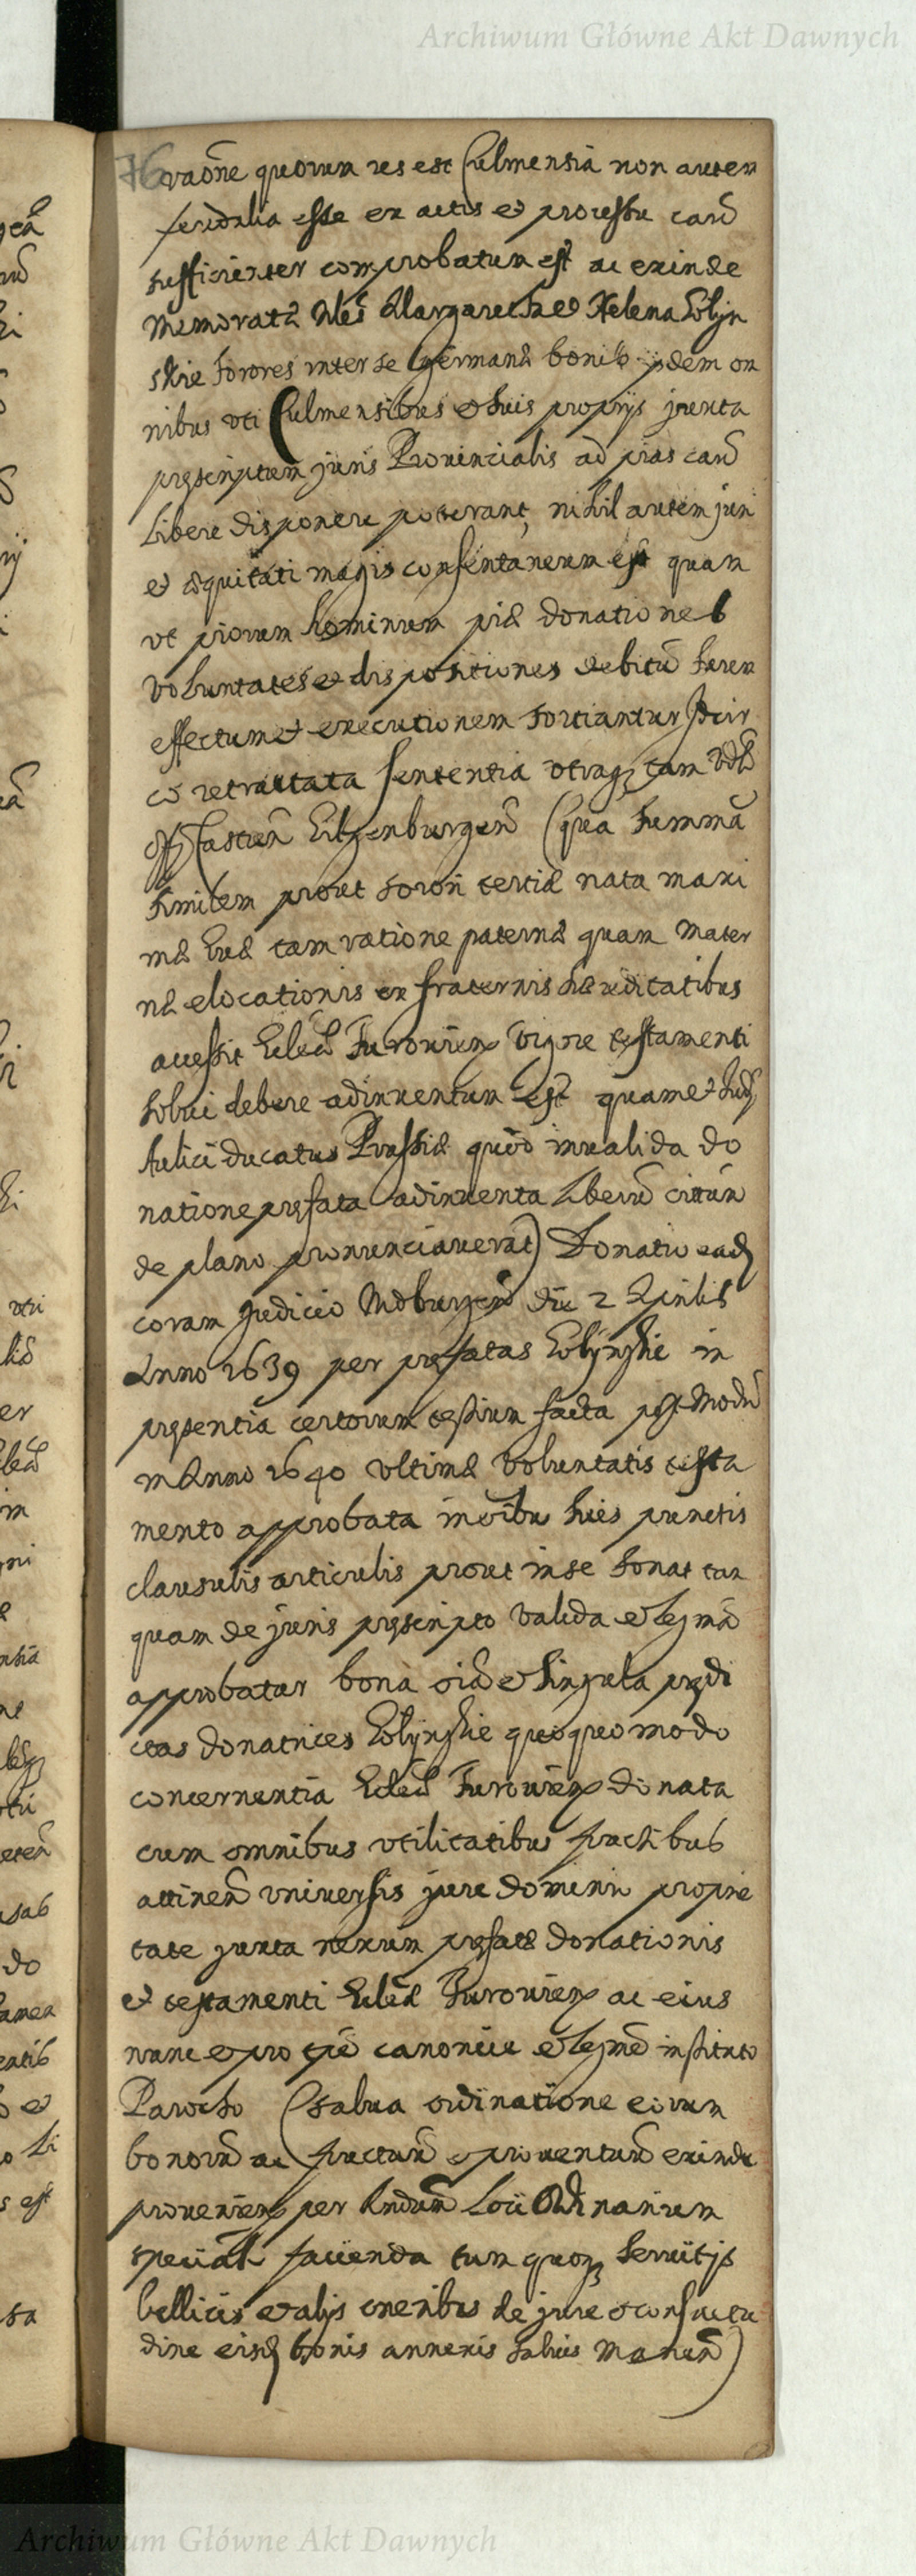 Archiwum Główne Akt Dawnych
76
raõne quorum res est Culmensia non autem
feudalia esse ex actis et processu causũ
sufficienter comprobatum est ac exinde
memoratæ Nles Margaretha et Helena Eolyn
skie sorores inter se germanæ bonis ijsdem om
nibus uti Culmensibus et suis proprijs juxta
pręscriptum juris Provincialis ad pias caus̃
libere disponere poterant, nihil autem juri
et æquitati magis consentaneum est quam
ut piorum hominum piæ donationes
voluntates et dispositiones debitũ suum
effectum et executionem sortiantur Idcir
co retractata sententia utraq tam
Castren̄ (qua summã
similem prout sorori tertiæ natu maxi
mæ Evæ tam ratione paternæ quam mater
næ elocationis ex fraternis hæreditatibus
accessit Eccleæ Turovien vigore testamenti
solvi debere adinventum est quam et
Aulici ducatus Prussiæ quod invalida do
natione pręfata adinventa liberũ
de plano pronunciaverat) Donatio
coram Judicio die 2 Aprilis
Anno 1639 per pręfatas Eolynskie in
pręsentia certorum testium facta post modũ
in Anno 1640 ultimæ voluntatis testa
mento approbata in oibus suis punctis
clausulis articulis prout in se sonat tan
quam de juris pręscripto valida et legmã
approbatur bona oia et singula prędi
ctas donatrices Eolynskie quoquo modo
concernentia Eccleæ Turovien donata
cum omnibus utilitatibus fructibus
attinen̄ universis jure dominii proprie
tate juxta nexum pręfatæ donationis
et testamenti Eccleæ Turovien ac eius
nunc et pro tpe canonice et legme instituto
Parocho (salva ordinatione eorum
bonorũ ac fructuũ et proventuũ exinde
provenien per Rndum Loci Ordinarium
faciienda tum quoq servitijs
bellicis et alijs oneribus de jure et consuetu
dine eisd bonis annexis salvis manen̄)
Archiwum Główne Akt Dawnych